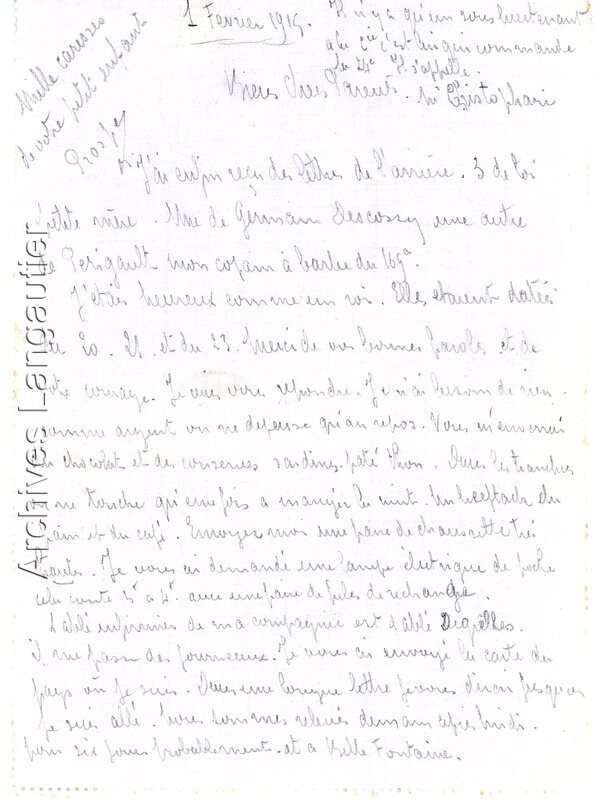 1 Fevrier 1915.
Il n'y a qu'un sous lieutenant
a la Cie c'est lui qui commande
la 24e Il s'appelle
Mr Cristophari
Mille caresses
de votre petit enfant
Prosper
Biens chers Parents.
J'ai enfin reçu des lettres de l'arrière. 3 de toi
petite mère. Une de Germain Descossy une autre
de Perigault mon copain à Barbe du 169e.
J'étais heureux comme un roi. Elles etaient datées
du 20. 21. et du 23. Merci de vos bonnes paroles et de
votre courage. Je vais vous repondre. Je n'ai besoin de rien
comme argent on ne depense qu'au repos. Vous m'enverrai
du chocolat et des conserves sardines. paté thon. Dans les tranchées
on ne touche qu'une fois a manger la nuit. Un beeftack du
pain et du café. Envoyez moi une paire de chaussette très
hautes. Je vous ai demandé une lampe électrique de poche
cela coute 3f a 4f. avec une paire de piles de rechange.
L'abbé infirmier de ma compagnie est l'abbé Degelles.
il me passe des journeaux. Je vous ai envoyé la carte du
pays où je suis. Dans une longue lettre je vous dirai jusqu'ou
je suis allé. Nous sommes relevés demain après midi.
pour six jours probablement et a Belle Fontaine.
Archives Langautier